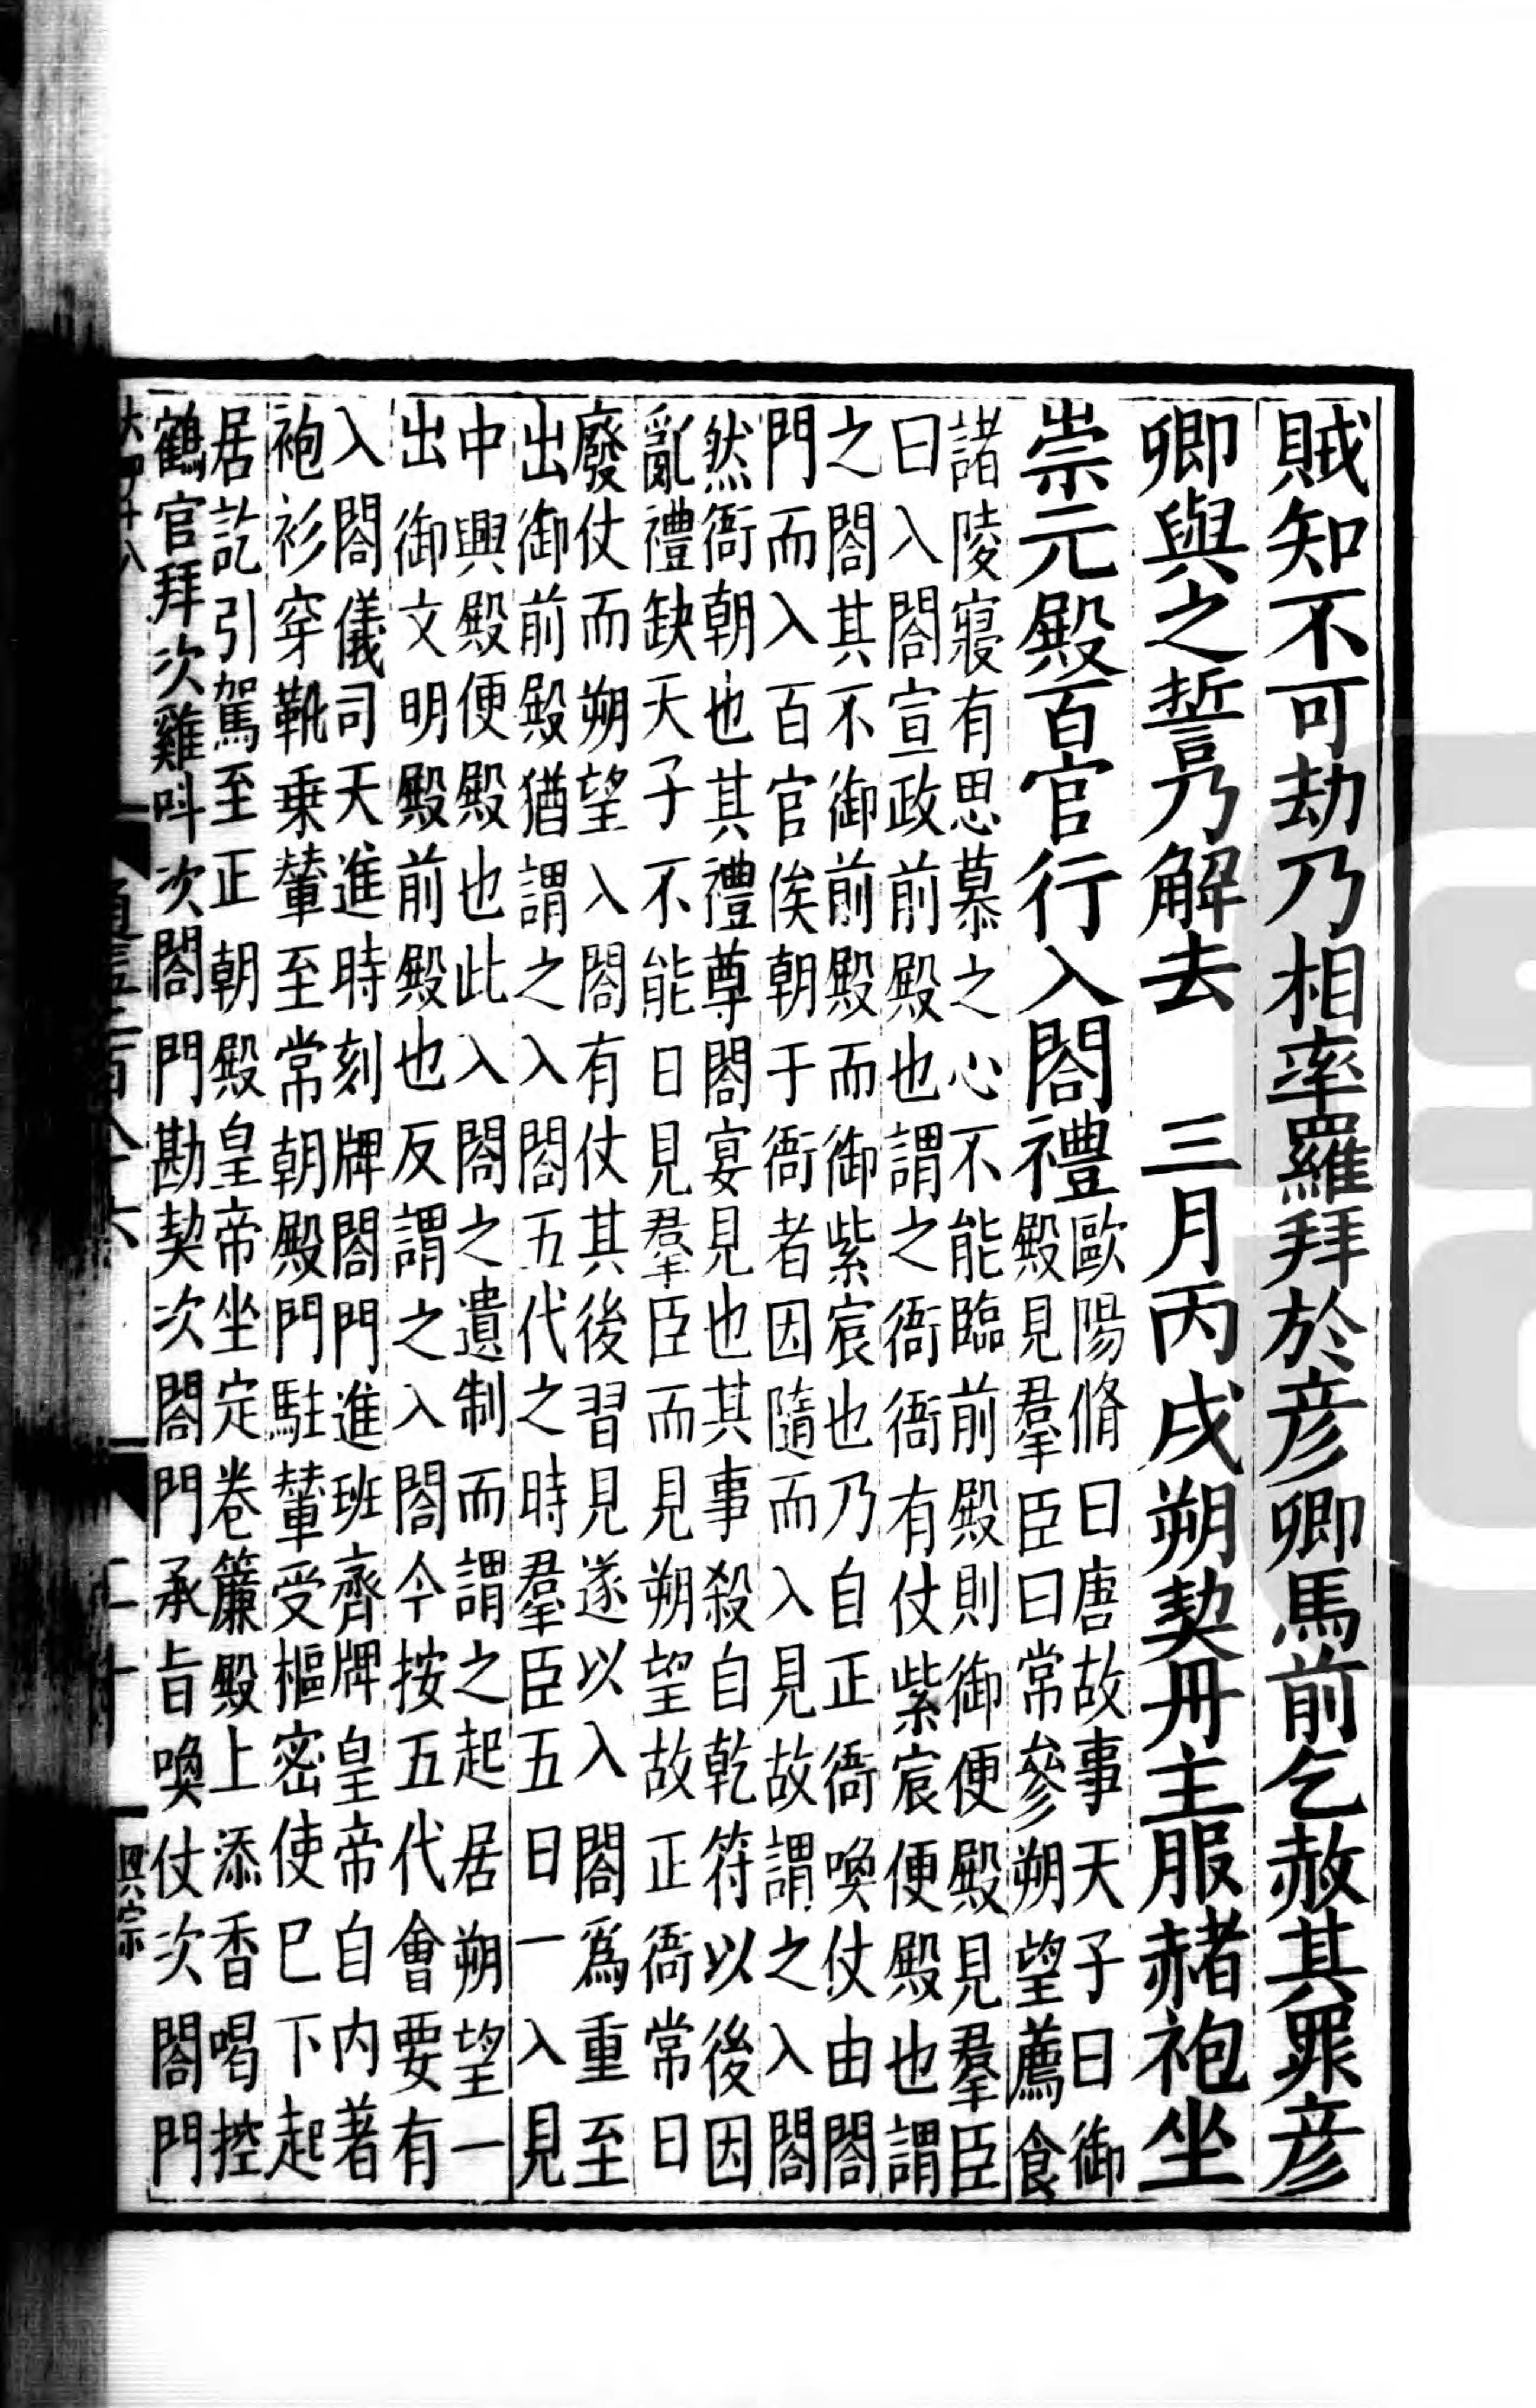 賊知不可劫乃相率羅拜於彦卿馬前乞赦其罪彦
卿與之誓乃解去　三月丙戌朔契丹主服赭袍坐
崇元殿百官行入閤禮
歐陽脩曰唐故事天子日御
殿見羣臣曰常參朔望薦食
諸陵寢有思慕之心不能臨前殿則御便殿見羣臣
曰入閤宣政前殿也謂之衙衙有仗紫宸便殿也謂
之閤其不御前殿而御紫宸也乃自正衙喚仗由閤
門而入百官俟朝于衙者因隨而入見故謂之入閤
然衙朝也其禮尊閤宴見也其事殺自乾符以後因
亂禮缺天子不能日見羣臣而見朔望故正衙常日
廢仗而朔望入閤有仗其後習見遂以入閤爲重至
出御前殿猶謂之入閤五代之時羣臣五日一入見
中興殿便殿也此入閤之遺制而謂之起居朔望一
出御文明殿前殿也反謂之入閤今按五代會要有
入閤儀司天進時刻牌閤門進班齊牌皇帝自内著
袍衫穿靴乗輦至常朝殿門駐輦受樞密使已下起
居訖引駕至正朝殿皇帝坐定卷簾殿上添香喝控
鶴官拜次雞呌次閤門勘契次閤門承旨喚仗次閤門